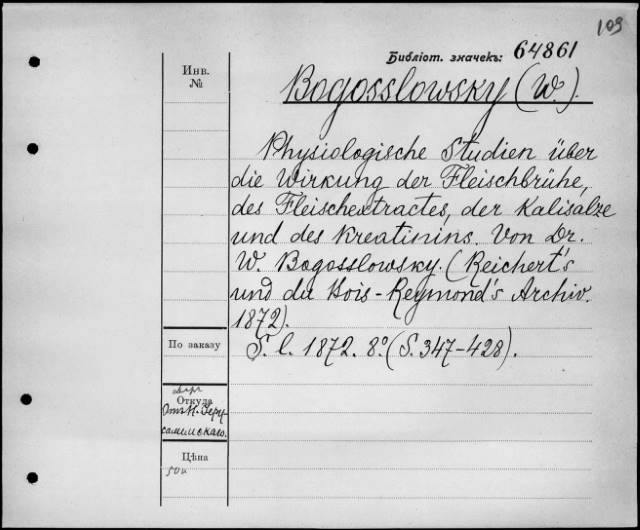 109
Библіот. значекъ: 64861
Инв.
№
Bogosslowsky (W.).
Physiologische Studien über
die Wirkung der Fleischbrühe,
des Fleischextractes, der Kalisalze
und des Kreatinins. Von Dr.
W. Bogosslowsky. (Reichert's
und du Bois-Reymond's Archiv.
1872).
S. l. 1872. 8º. (S. 347-428).
По заказу
Откуда
Отъ И. Іеру-
салимскаго.
Цѣна
50к